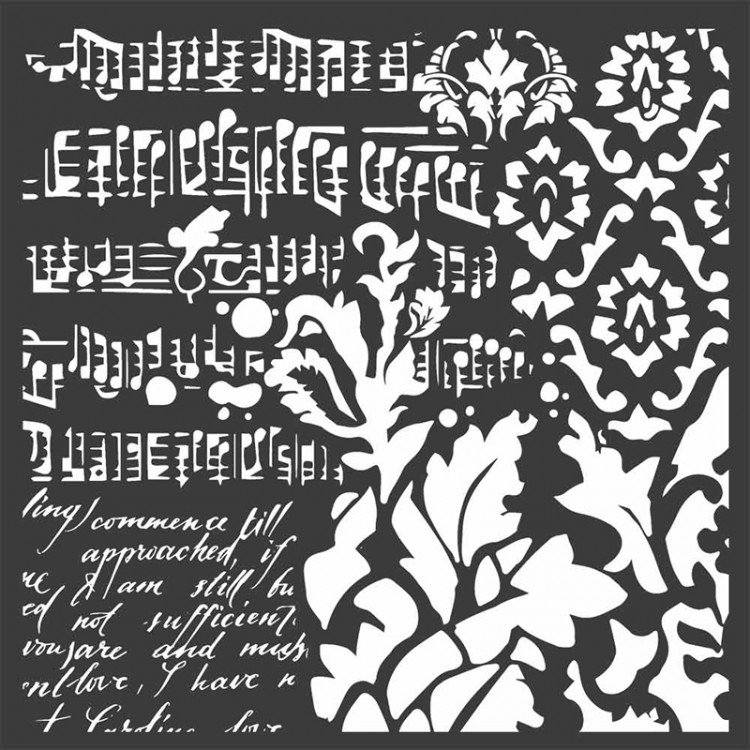 ling) commence till
approached, if
re I am still bu
ed not sufficient
you are and much
ent love, I have n
t Caroline love